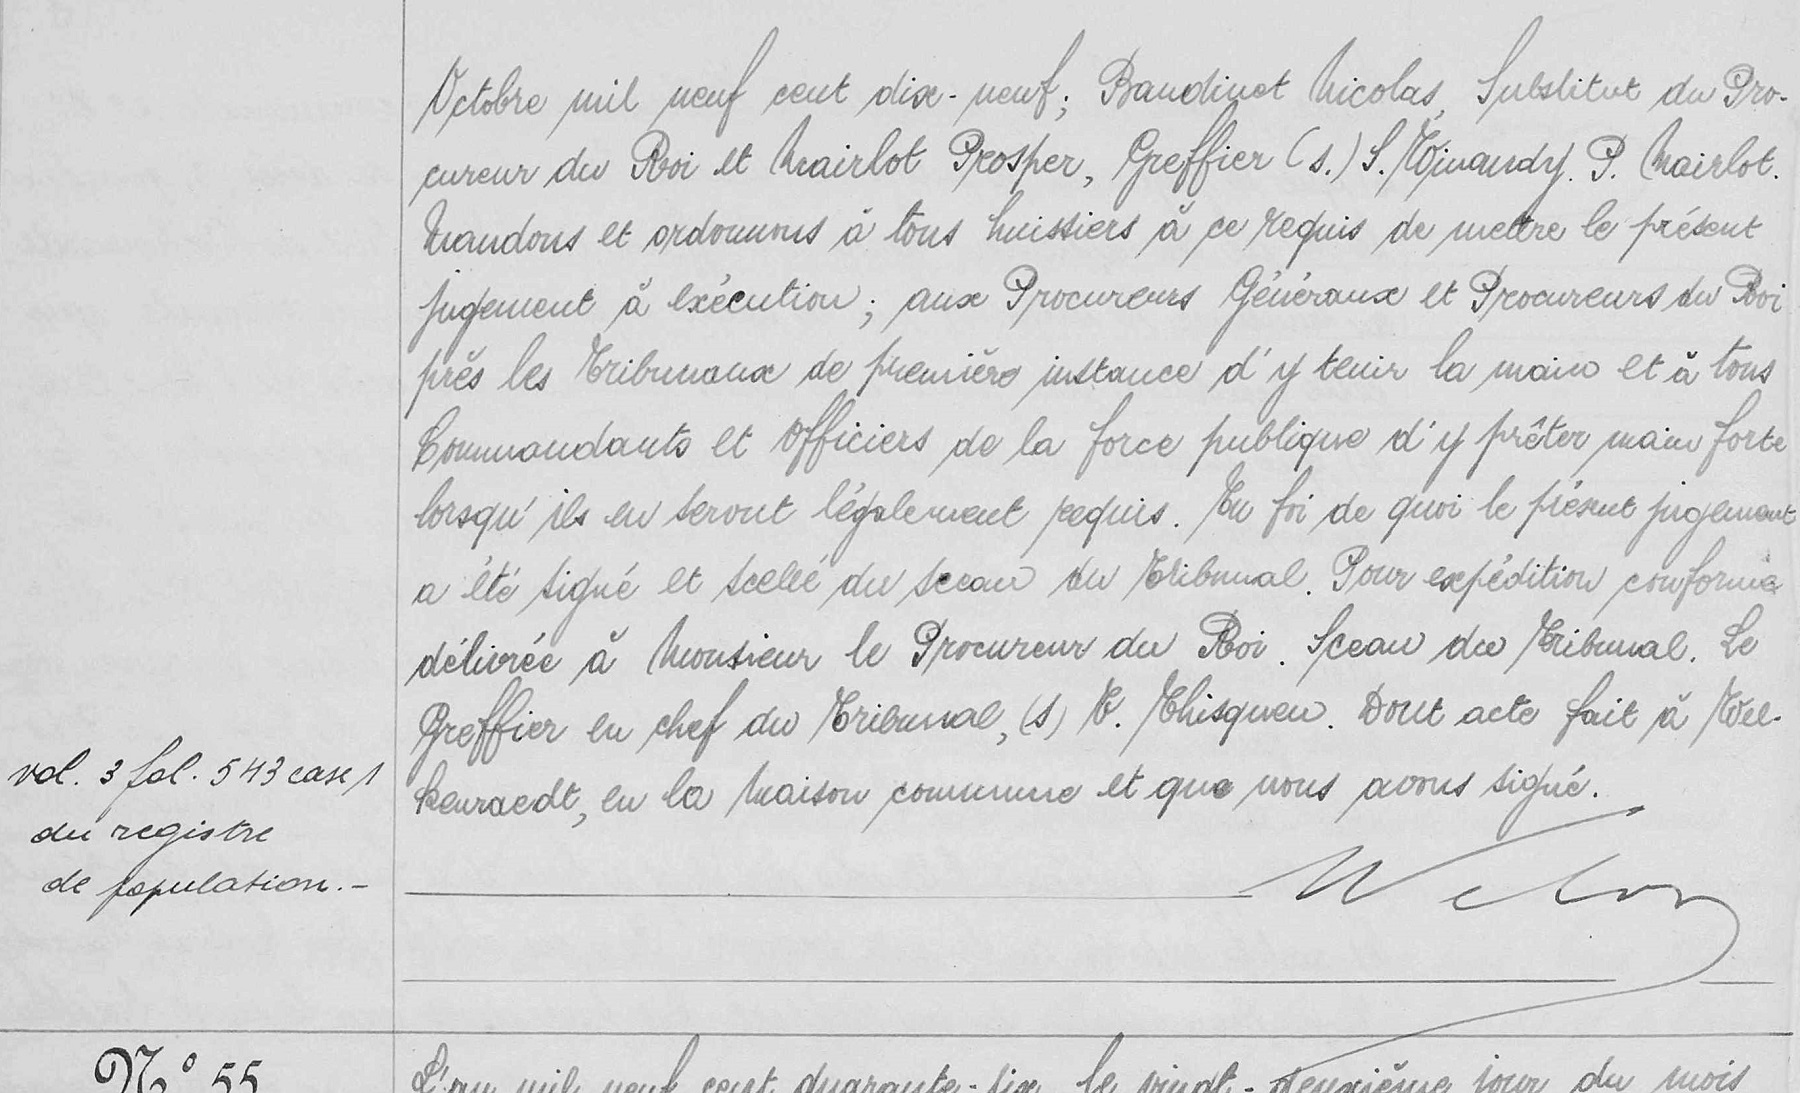 Octobre mil neuf cent dix-neuf; Baudinet Nicolas, Substitut du Pro-
cureur du Roi et Mairlot Prosper, Greffier (s.) S. Winandy. P. Mairlot.
Mandons et ordonnons à tous huissiers à ce requis de mettre le présent
jugement à exécution; aux Procureurs Généraux et Procureurs du Roi
près les Tribunaux de première instance d'y tenir la main et à tous
Commandants et officiers de la force publique d'y prêter main forte
lorsqu'ils en seront légalement requis. En foi de quoi le présent jugement
a été signé et scellé du sceau du Tribunal. Pour expédition conforme
délivrée à Monsieur le Procureur du Roi. Sceau du Tribunal. Le
Greffier en chef du Tribunal, (s) Thisquen. Dont acte fait à Wel-
kenraedt, en la Maison commune et que nous avons signé.
vol. 3 fol. 543 case 1
du registre
de population.-
N° 55
L'an mil neuf cent quarante-six, le vingt-deuxième jour du mois